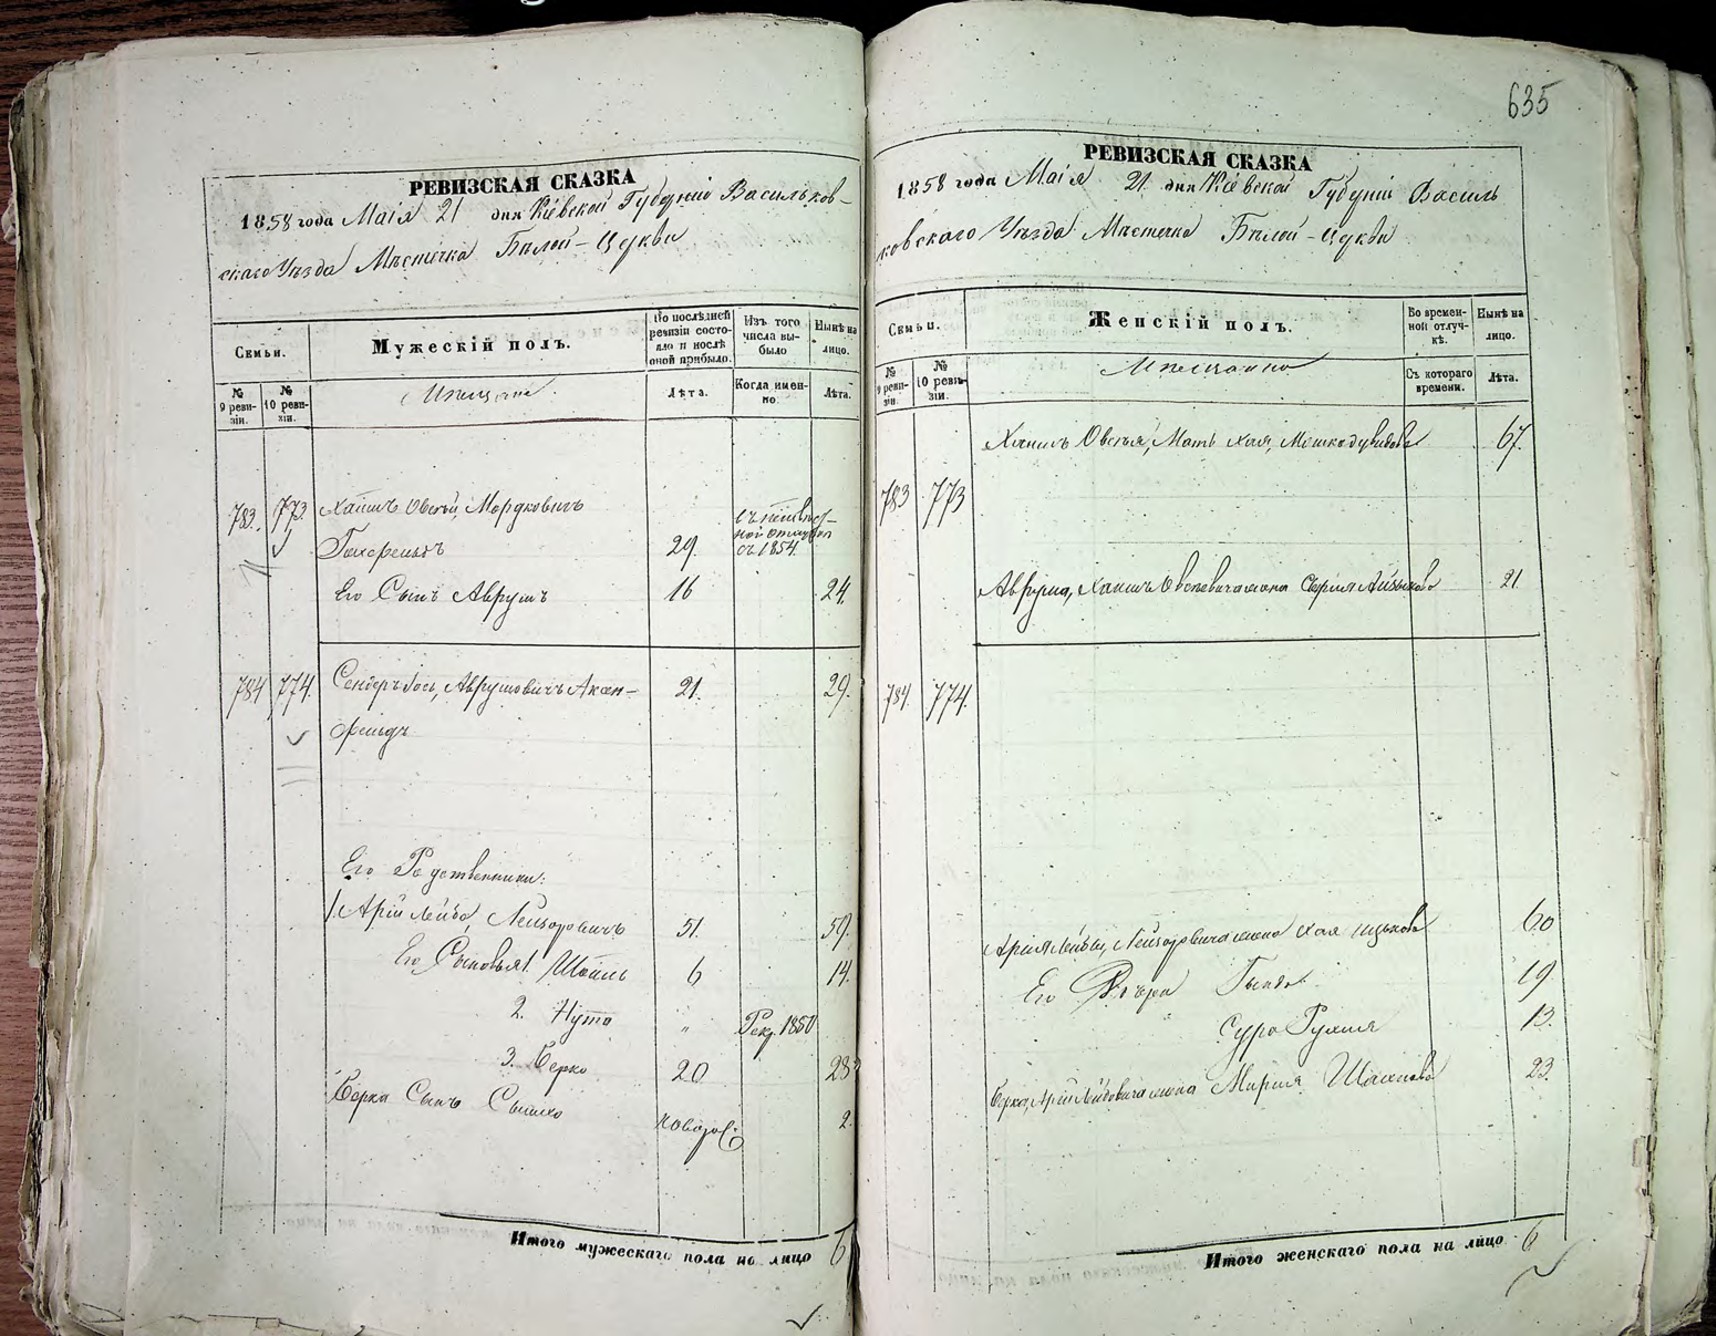 635
РЕВИЗСКАЯ СКАЗКА
1858 года Маія 21 дня Кіевской Губерніи Васильков-
скаго Уѣзда Мѣстечка Бѣлой-Церкви
Семьи.
Мужескій полъ.
По послѣдней ревизіи состояло и послѣ оной прибыло.
Изъ того числа выбыло
Нынѣ на лицо.
№ 9 ревизіи.
№ 10 ревизіи.
Мѣщане.
Лѣта.
Когда именно.
Лѣта.
783. 773. Хаимъ Овсѣй, Мордковичъ
29. съ 1854.
Его Сынъ Аврумъ 16 24.
784 774. Сендеръ Іось, Аврумовичъ Акан- 21. 29.
фельдъ
Его Родственники:
Арій Лейба, Лейзоровичъ 51. 59.
Его Сыновья 1. Шмиль 6 14.
2. Нута " Рекр. 1850
3. Берко 20 28
Берка Сынъ новорож 2.
Итого мужескаго пола на лицо 6
РЕВИЗСКАЯ СКАЗКА
1858 года Маія 21 дня Кіевской Губерніи Василь
ковскаго Уѣзда Мѣстечка Бѣлой-Церкви
Семьи.
Женскій полъ.
Во временной отлучкѣ.
Нынѣ на лицо.
№ 9 ревизіи.
№ 10 ревизіи.
Мѣщанки
Съ котораго времени.
Лѣта.
Хаимъ Овсѣя, Мать Хая, 67.
783 773
Аврума, Хаимъ Овсѣевича жена 21
784. 774.
Арія Лейбы, Лейзоровича жена Хая 60
Его Дочери 19
Сура Рухля 13.
Берка, Арій Лейбовича жена 23.
Итого женскаго пола на лицо 6